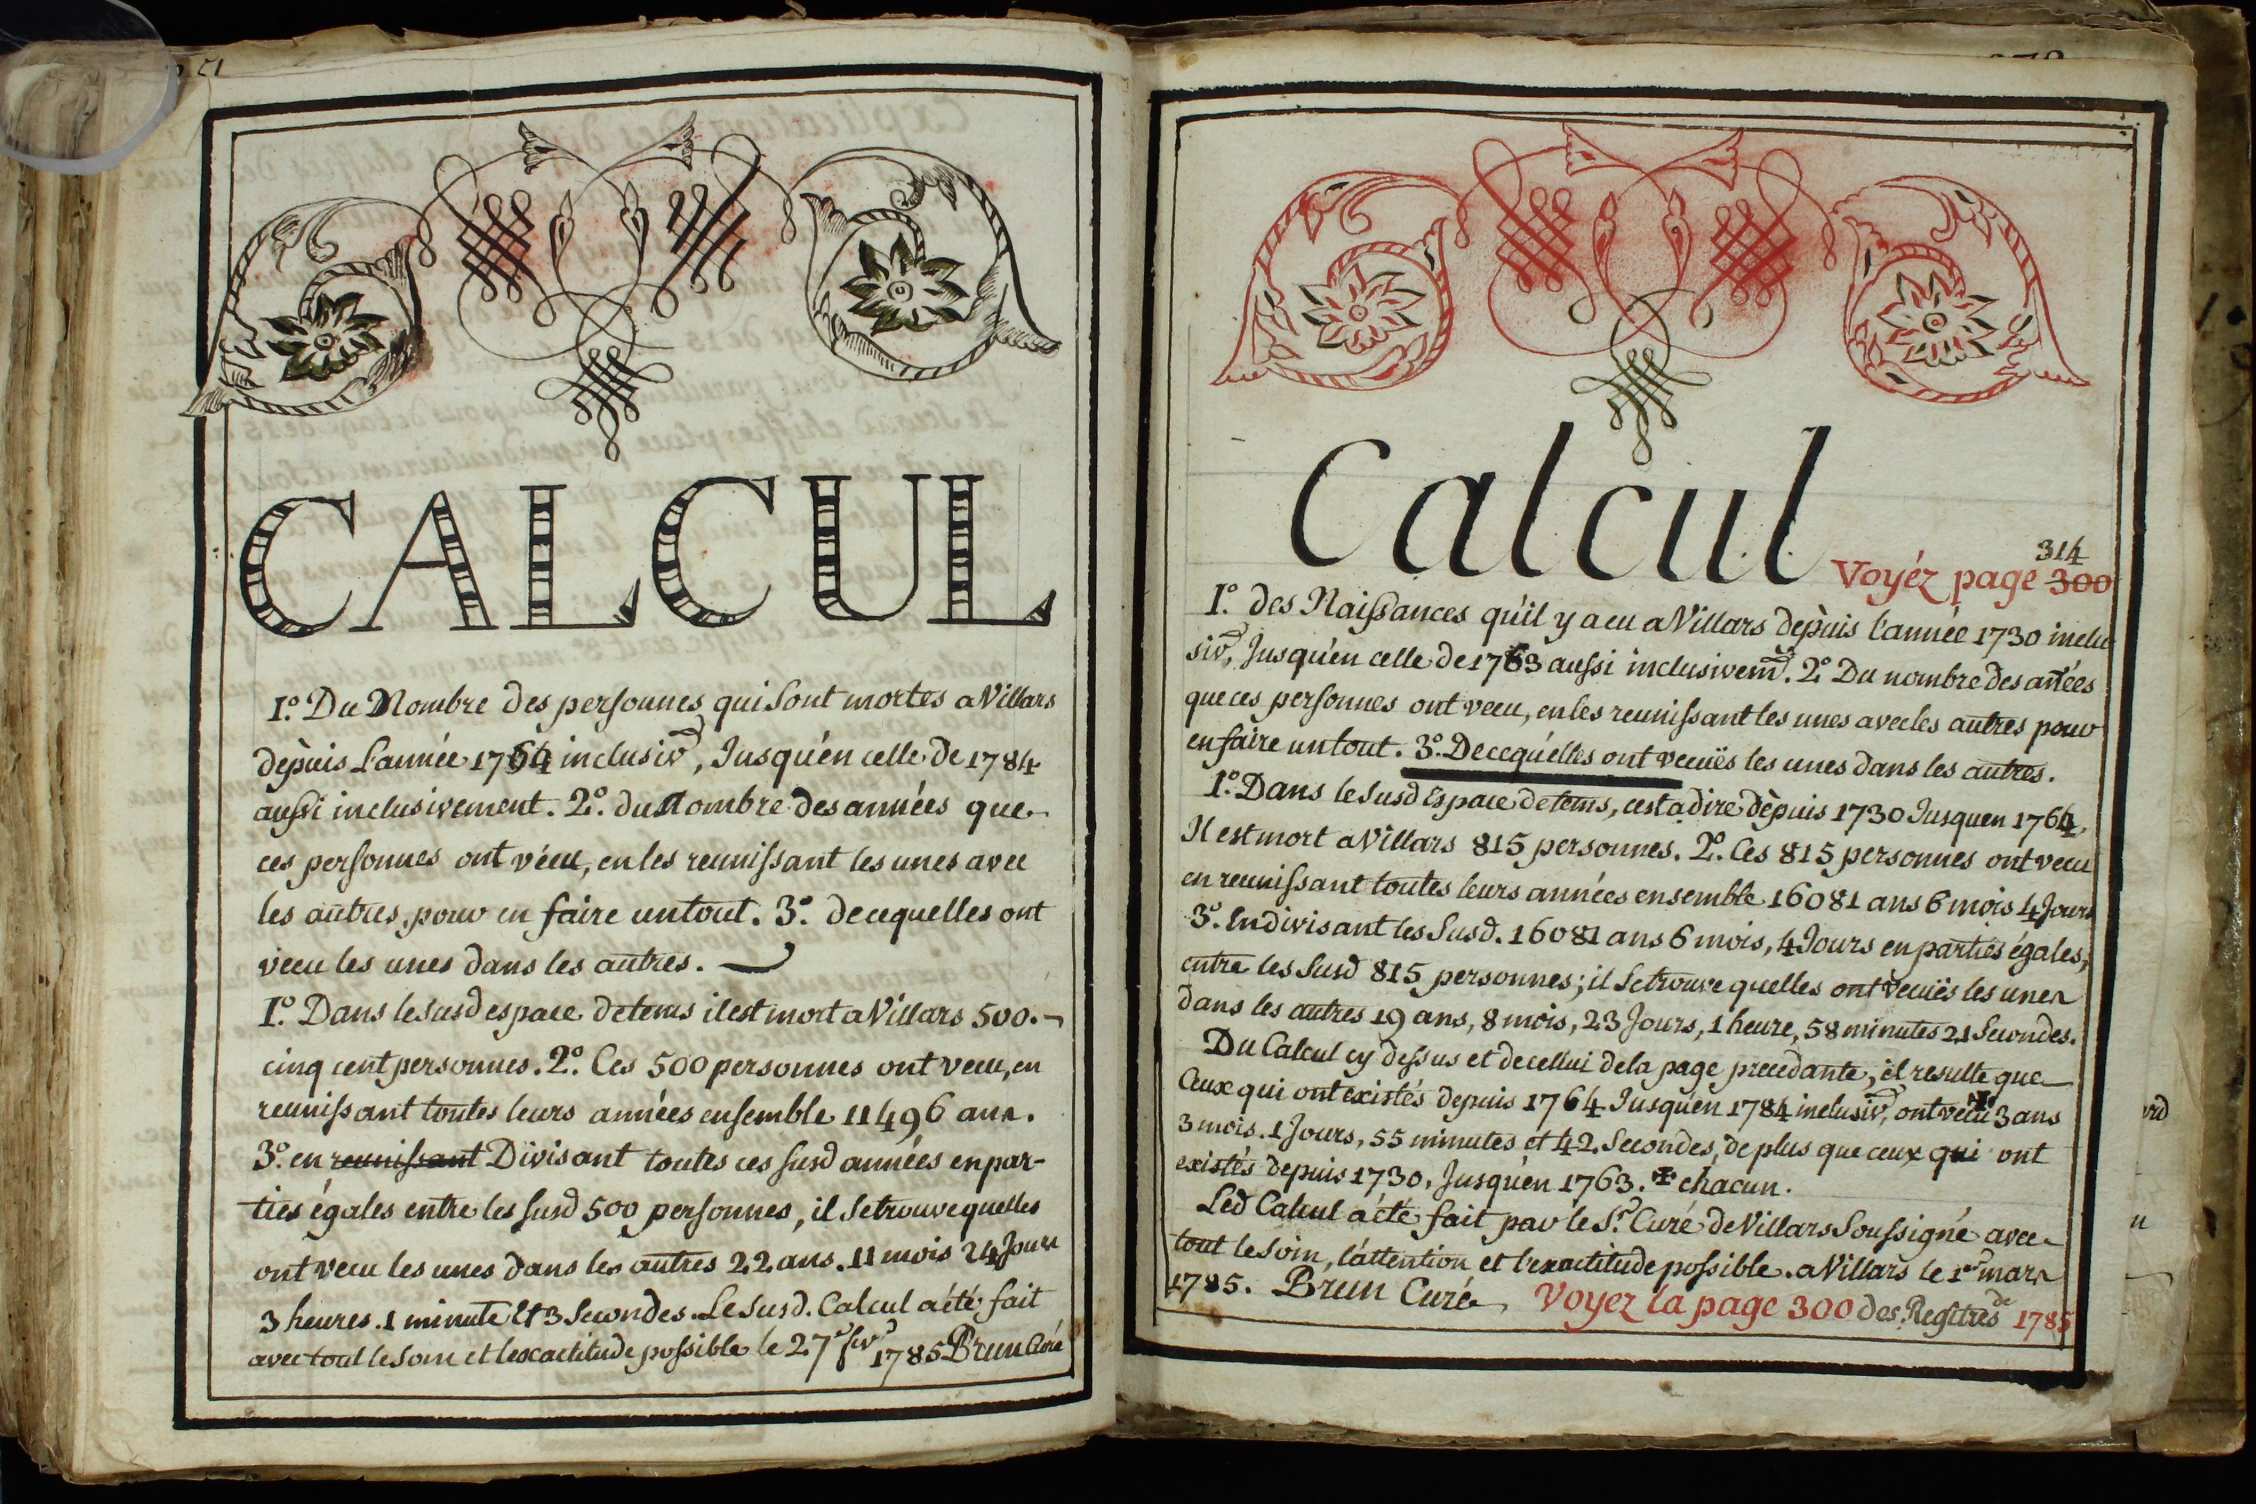 CALCUL
I.º Du Nombre des personnes qui sont mortes a Villars
depùis L'année 1764 inclusivt, Jusqu'én celle de 1784
aussi inclusivement. 2.º du nombre des années que
ces personnes ont vécu, en les reunissant les unes avec
les autres, pour en faire un tout. 3.º de cequelles ont
vecu les unes dans les autres.
I.º Dans le susd espace de tems il est mort a Villars 500.
cinq cent personnes. 2.º Ces 500 personnes ont vecu, en
reunissant toutes leurs années ensemble 11496 ans.
3.º en reunissant Divisant toutes ces susd années en par-
ties égales entre les susd 500 personnes, il se trouve quelles
ont vecu les unes dans les autres 22 ans. 11 mois 24 Jours
3 heures. 1 minute et 3 Secondes. Le susd. Calcul a été fait
avec tout le soin et l'exactitude possible le 27e fevr 1785 Brun Curé
Calcul
314
Voyéz page 300
I.º des Naissances qu'il y a eu a Villars depùis l'année 1730 inclu
sivt, Jusqu'én celle de 1763 aussi inclusivemt. 2.º Du nombre des années
que ces personnes ont vecu, en les reunissant les unes avec les autres pour
en faire un tout. 3.º De cequ'élles ont vecuës les unes dans les autres.
1.º Dans le susd Espace de tems, cest a dire dèpuis 1730 Jusquen 1764,
Il est mort a Villars 815 personnes. 2.º Ces 815 personnes ont vecu
en reunissant toutes leurs années ensemble 16081 ans 6 mois 4 Jours
3.º En divisant les Susd. 16081 ans 6 mois, 4 Jours en parties égales,
entre les susd 815 personnes; il se trouve quelles ont vecuës les unes
dans les autres 19 ans, 8 mois, 23 Jours, 1 heure, 58 minutes 21 Secondes.
Du Calcul cy dessus et de cellui de la page precedante, il resulte que
Ceux qui ont existés depuis 1764 Jusqu'en 1784 inclusivt, ont vécu ✠ 3 ans
3 mois. 1 Jours, 55 minutes et 42. Secondes, de plus que ceux qui ont
existés depuis 1730, Jusqu'én 1763. ✠ chácun.
Led Calcul a été fait par le Sr. Curé de Villars Soussigné avec
tout le soin, l'áttention et l'exactitude possible. a Villars le 1er mars
1785. Brun Curé Voyez la page 300 des Regîtres de 1785